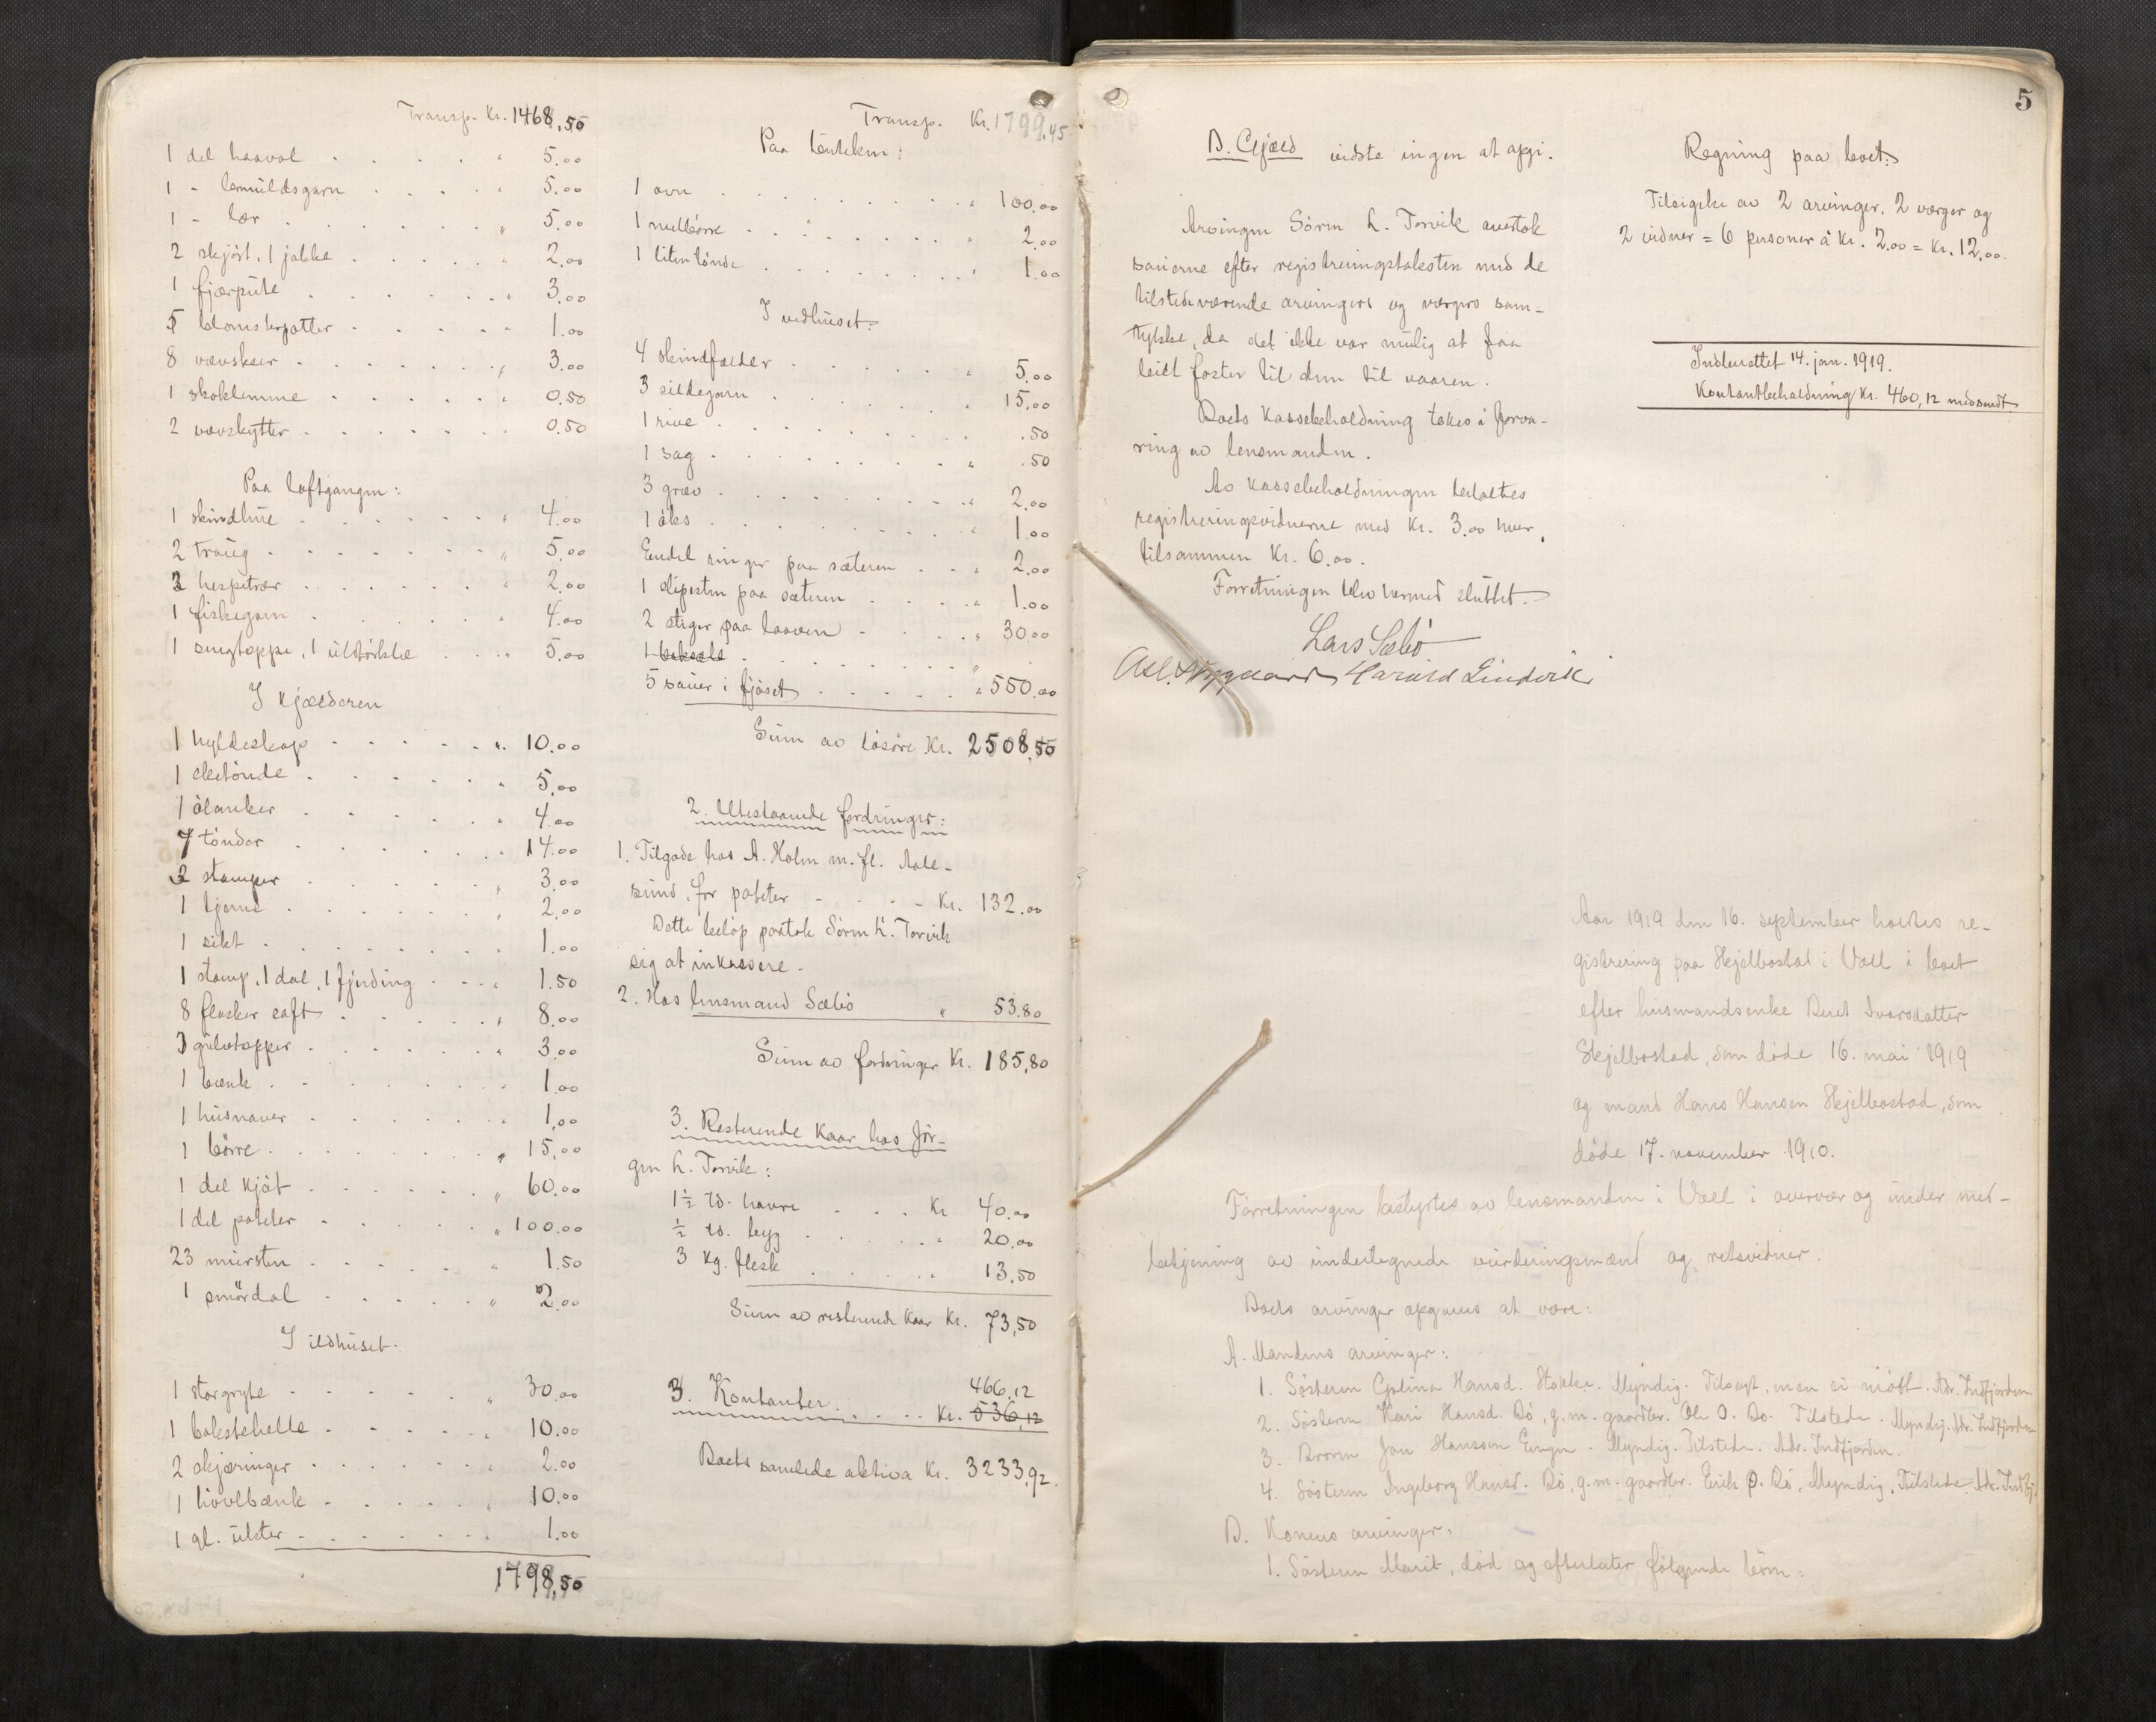 Transp. Kr. 1468,50
1 del haavol . . . . . " 5.00
1 - bomuldsgarn . . . . " 5.00
1 - lær . . . . . . " 5.00
2 skjört, 1 jakke . . . . " 2.00
1 fjærpute . . . . . . " 3.00
5 blomsterpotter . . . . . 1.00
8 vævskeer . . . . . . " 3.00
1 skoklemme . . . . . " 0.50
2 vævskytter . . . . . . 0.50
Paa loftgangen:
1 skindhue . . . . . . " 4.00
2 traug . . . . . . " 5.00
2 hespetrær . . . . . . " 2.00
1 fiskegarn . . . . . " 4.00
1 sengteppe, 1 uldtörklæ . . " 5.00
I kjælderen
1 hyldeskap . . . . . " 10.00
1 eketönde . . . . . . " 5.00
1 ölanker . . . . . " 4.00
7 tönder . . . . . . 14.00
2 stamper . . . . . " 3.00
1 kjerne . . . . . . " 2.00
1 sikt . . . . . . . 1.00
1 stamp, 1 dal, 1 fjerding . . . " 1.50
8 flasker saft . . . . . " 8.00
3 gulvtepper . . . . . . " 3.00
1 bænk . . . . . . . 1.00
1 husnaver . . . . . " 1.00
1 börre . . . . . . . " 15.00
1 del kjöt . . . . . . " 60.00
1 del poteter . . . . . " 100.00
23 mursten . . . . . " 1.50
1 smördal . . . . . " 2.00
I ildhuset.
1 storgryte . . . . . " 30.00
1 bakstehelle . . . . . " 10.00
2 skjæringer . . . . . . " 2.00
1 hövelbænk . . . . . " 10.00
1 gl. ulster . . . . . . " 1.00
1798,50
Transp. Kr. 1799.45
Paa
1 ovn . . . . . . . . " 100.00
1 melbörre . . . . . . . " 2.00
1 liten tönde . . . . . . . " 1.00
I vedhuset:
4 skindfælder . . . . . " 5.00
3 sildegarn . . . . . . " 15.00
1 rive . . . . . . . . " .50
1 sag . . . . . . . . " .50
3 grev . . . . . . . . " 2.00
1 öks . . . . . . . . " 1.00
Endel ringer paa sæteren . . " 2.00
1 slipesten paa sæteren . . . . " 1.00
2 stiger paa laaven . . . . " 30.00
1
5 sauer i fjöset . . . . . " 550.00
Sum av lösöre Kr. 2508,50
2. Utestaaende fordringer:
1. Tilgode hos A. Holm m. fl. Aale-
sund, for poteter . . . - Kr. 132.00
Dette belöp paatok Sören L. Torvik
sig at inkassere -
2. Hos lensmand Sæbö " 53.80
Sum av fordringer Kr. 185,80
3. Resterende kaar hos Jör-
gen L. Torvik:
1½ td. havre . . . Kr 40.00
½ td. byg . . . . . " 20.00
3 kg. flesk . . . . " 13,50
Sum av resterende kaar Kr. 73,50
466,12
3. Kontanter . . . . . Kr. 536,12
Boets samlede aktiva Kr. 3233,92.
5
B. Gjæld vidste ingen at opgi.
Arvingen Sören L. Torvik overtok
sauerne efter registreringstaksten med de
tilstedeværende arvingers og værgers sam-
tykke, da det ikke var mulig at faa
leid foster til dem til vaaren.
Boets kassebeholdning tokes i forva-
ring av lensmanden.
Av kassebeholdningen betaltes
registreringsvidnerne med Kr. 3.00 hver,
tilsammen Kr. 6.00.
Forretningen blev hermed sluttet.
Lars Sæbö
Harald Lindvik
Regning paa boet:
Tilsigelse av 2 arvinger, 2 værger og
2 vidner = 6 personer á Kr. 2.00 = Kr. 12.00.
Indberettet 14. jan. 1919.
Kontantbeholdning Kr. 460,12 medsendt
Aar 1919 den 16. september holdtes re-
gistrering paa Skjelbostad i Voll i boet
efter husmandsenke Beret Ivarsdatter
Skjelbostad, som döde 16. mai 1919
og mand Hans Hansen Skjelbostad, som
döde 17. november 1910.
Forretningen bestyrtes av lensmanden i Voll i overvær og under med-
betjening av undertegnede vurderingsmænd og retsvidner.
Boets arvinger opgaves at være:
A. Mandens arvinger:
1. Söstren Hansd. Stokke. Myndig. Tilsagt, men ei mött. Adr. Indfjorden
2. Söstren Kari Hansd. Bö, g.m. gaardbr. Ole O. Bö. Tilstede. Myndig. Adr. Indfjorden
3. Broren Jon Hanssen Engen. Myndig. Tilstede. Adr. Indfjorden.
4. Söstren Ingeborg Hansd. Bö, g.m. gaardbr. Erik O. Bö, Myndig, Tilstede. Adr. Indfj
B. Konens arvinger:
1. Söstren Marit, död og efterlater fölgende börn: